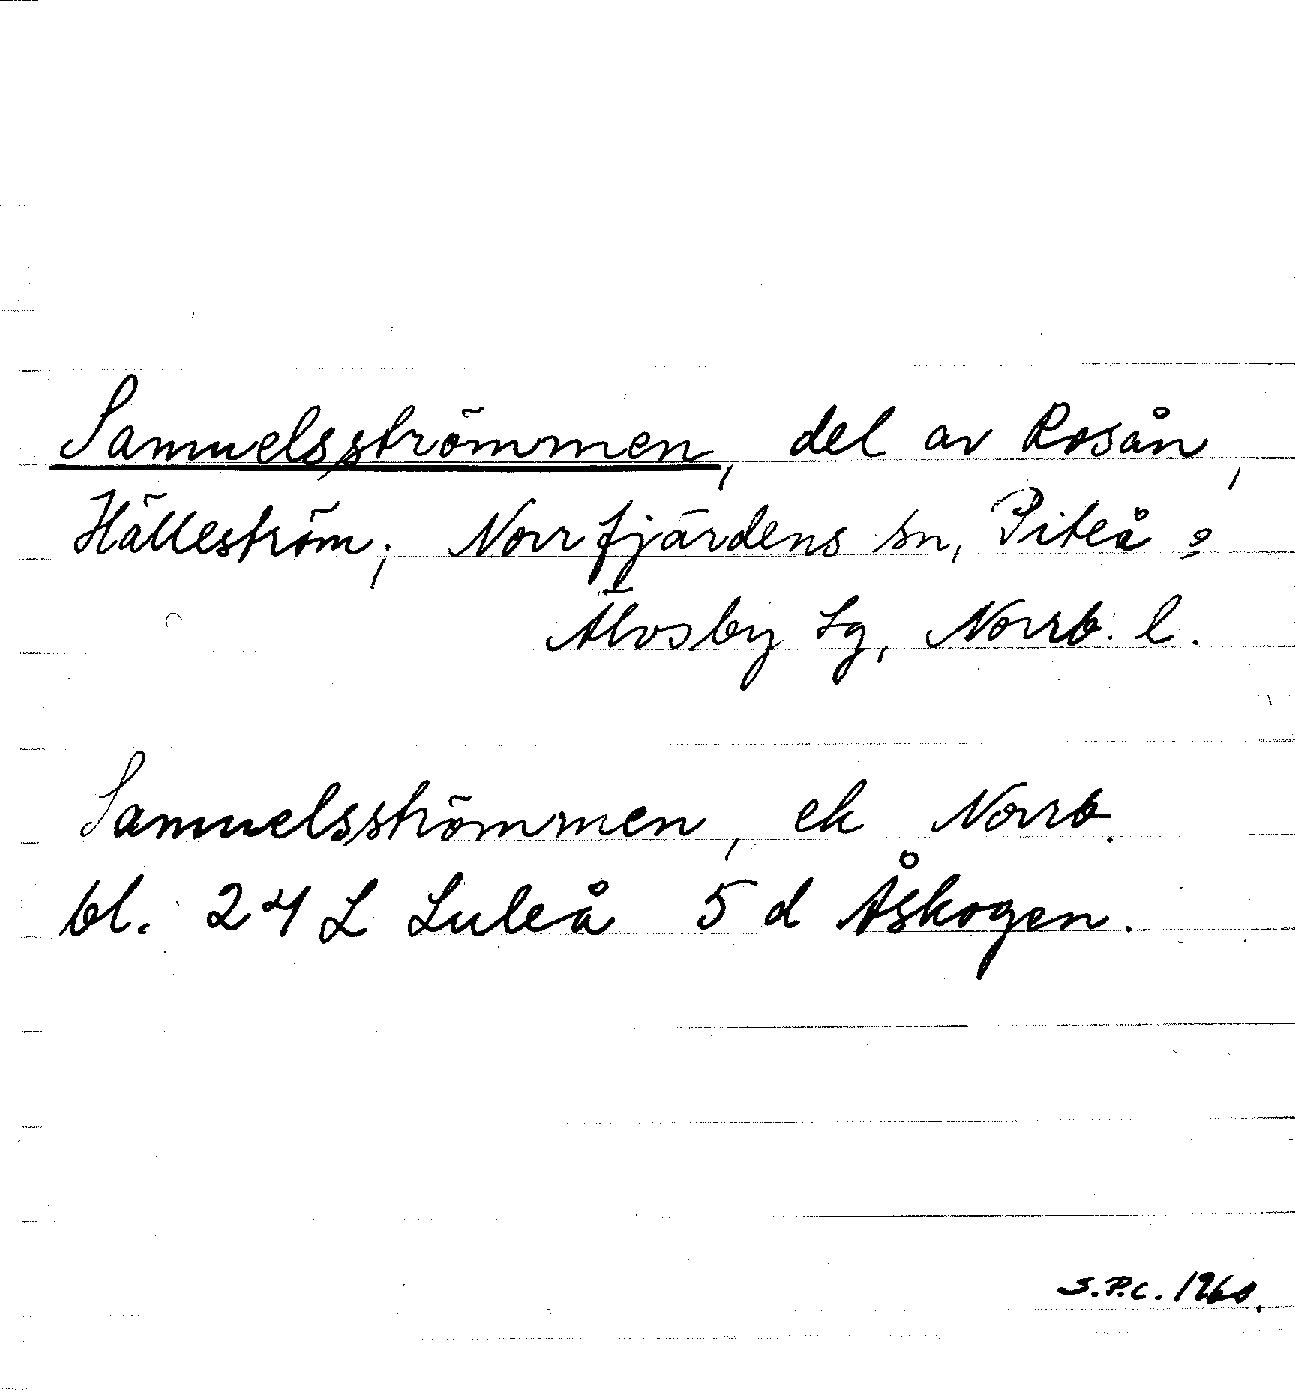 Samuelsströmmen, del av Rosån,
Hälleström, Norrfjärdens sn, Piteå o
Älvsby tg, Norrb. l.
Samuelsströmmen, ek Norrb.
bl. 24 L Luleå 5 d Åskogen.
S.P.C. 1960.